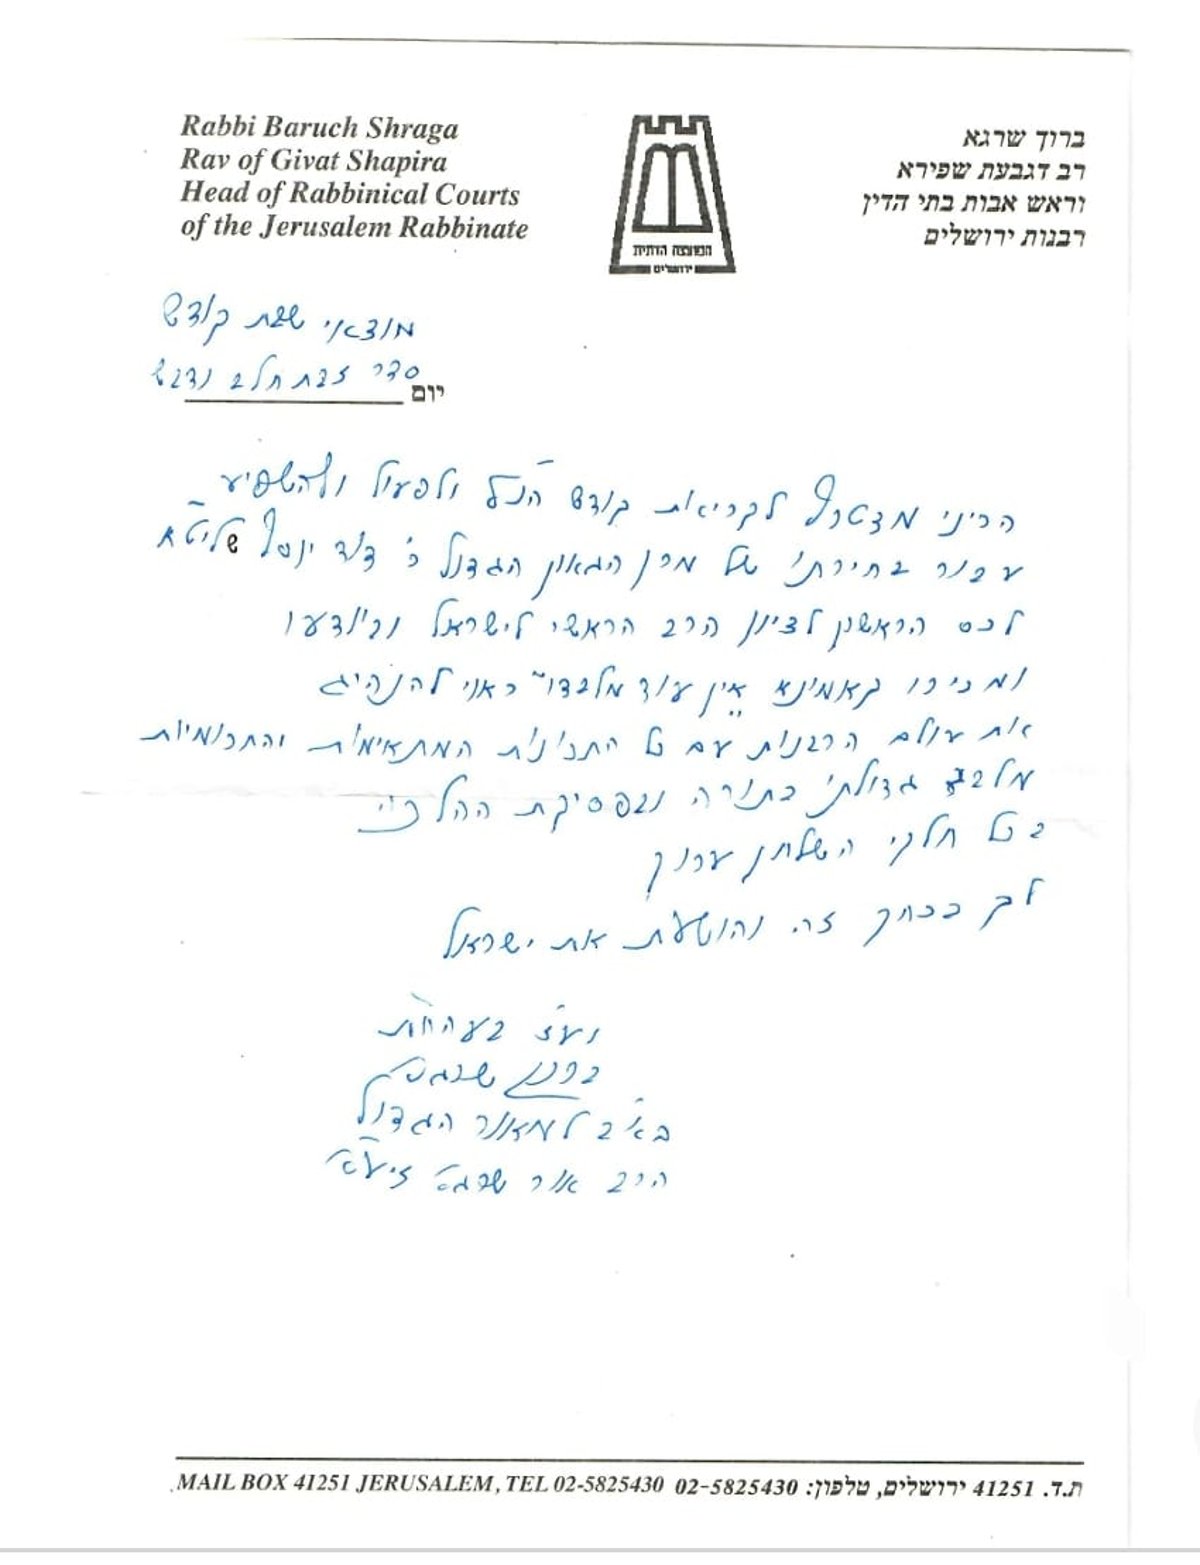 Rabbi Baruch Shraga
Rav of Givat Shapira
Head of Rabbinical Courts
of the Jerusalem Rabbinate
ברוך שרגא
רב דגבעת שפירא
וראש אבות בתי הדין
רבנות ירושלים
המועצה הדתית
ירושלים
מוצאי שבת קודש
סדר זבת חלב ודבש
יום
הריני מצטרף לקריאת קודש הנ"ל ולפעול ולהשפיע
עבור בחירתו של מרן הגאון הגדול ר' דוד יוסף שליט"א
לכס הראשון לציון הרב הראשי לישראל וביודעו
ומכירו קאמינא "אין עוד מלבדו" ראוי להנהיג
את עולם הרבנות עם כל התכונות המתאימות והתרומיות
מלבד גדולתו בתורה ובפסיקת ההלכה
בכל חלקי השלחן ערוך
לך בכחך זה והושעת את ישראל
ועז בעה"ח
ברוך שרגא
בא"ב למאור הגדול
הרב אור שרגא זיע"א
MAIL BOX 41251 JERUSALEM, TEL 02-5825430
ת.ד. 41251 ירושלים, טלפון: 02-5825430